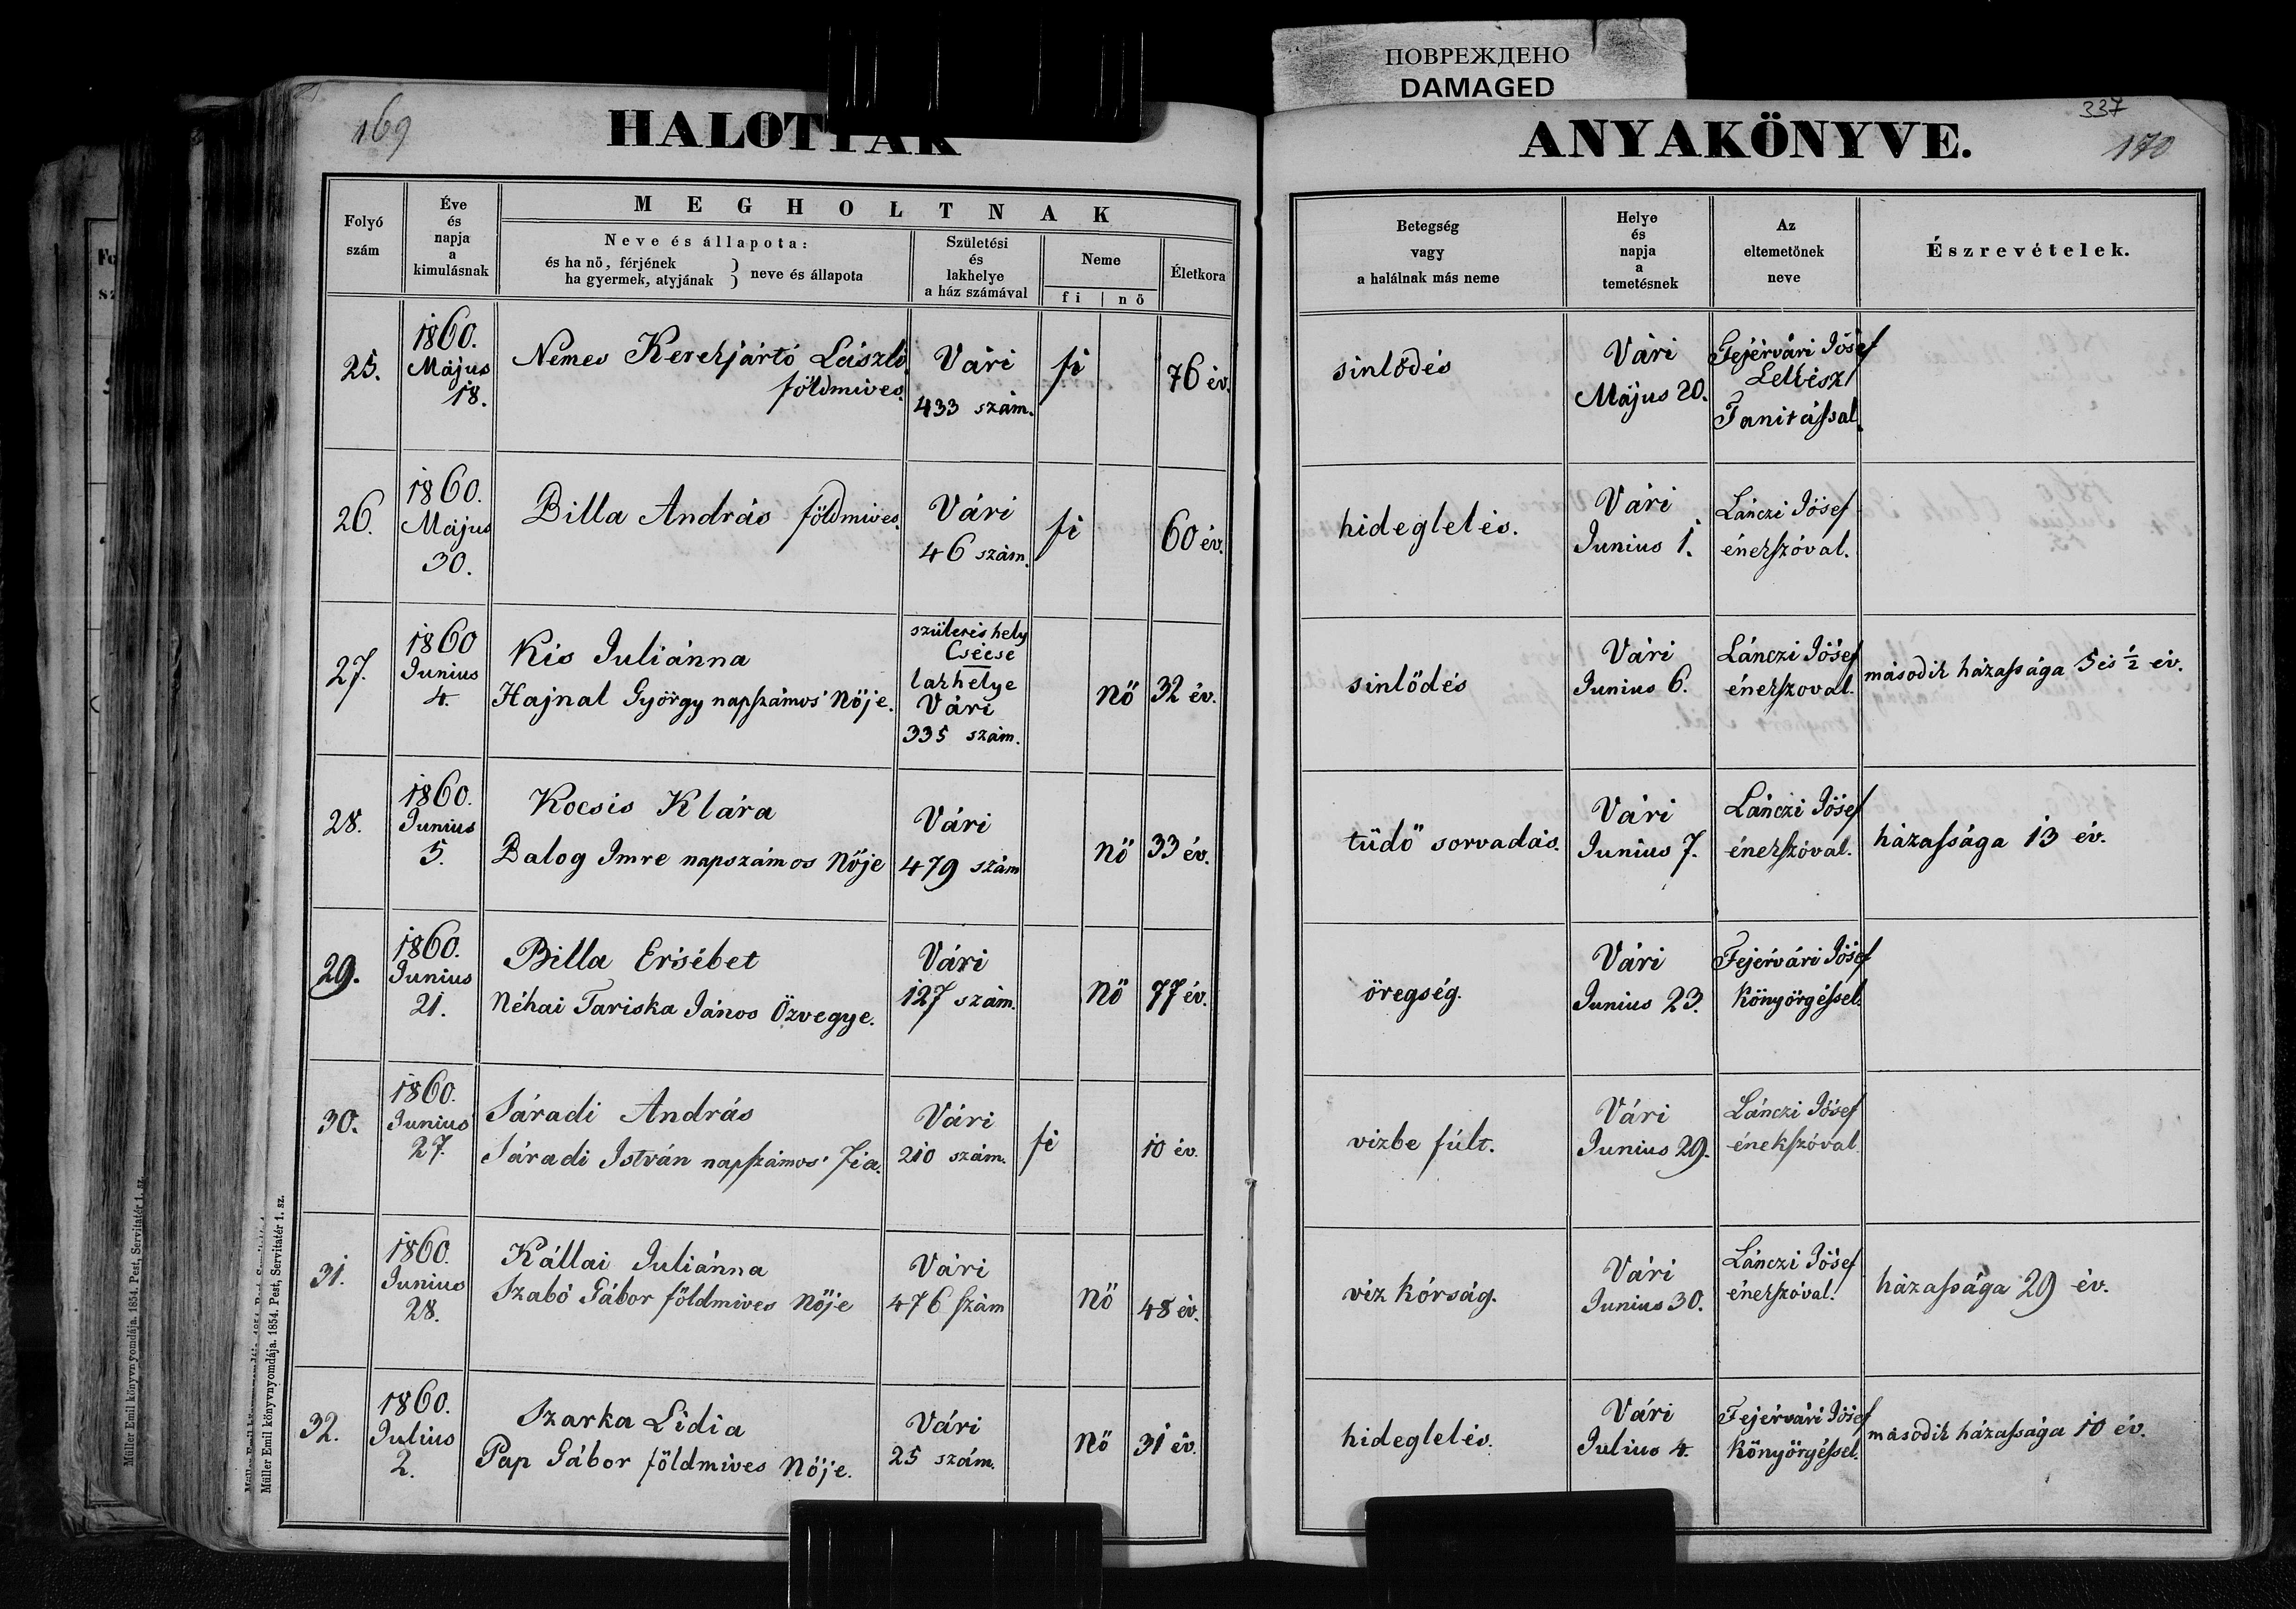 ПОВРЕЖДЕНО
DAMAGED
169
HALOTTAK
ANYAKÖNYVE.
337
170
Folyó
szám
Éve
és
napja
a
kimulásnak
MEGHOLTNAK
Neve és állapota:
és ha nö, férjének
ha gyermek, atyjának } neve és állapota
Születési
és
lakhelye
a ház számával
Neme
fi | nö
Életkora
Betegség
vagy
a halálnak más neme
Helye
és
napja
a
temetésnek
Az
eltemetönek
neve
Észrevételek.
25.
1860.
Május
18.
Nemes Kerekjártó László
földmives.
Vári
433 szám.
fi
76 év.
sinlődés
Vári
Május 20.
Fejérvári Jósef
Lelkész
Tanitással.
26.
1860.
Május
30.
Billa András földmives.
Vári
46 szám.
fi
60 év.
hideglelés.
Vári
Junius 1.
Lánczi Jósef
énekszóval.
27.
1860
Junius
4.
Kis Juliánna
Hajnal György napszámos' Nője.
születés hely
Csécse
lakhelye
Vári
335 szám.
nő
32 év.
sinlődés
Vári
Junius 6.
Lánczi Jósef
énekszoval.
második házassága 5 és ½ év.
28.
1860.
Junius
5.
Kocsis Klára
Balog Imre napszámos Nője
Vári
479 szám
nő
33 év.
tüdő sorvadás.
Vári
Junius 7.
Lánczi Jósef
énekszóval.
házassága 13 év.
29.
1860.
Junius
21.
Billa Ersébet
Néhai Tariska János Özvegye.
Vári
127 szám.
nő
77 év.
öregség.
Vári
Junius 23.
Fejérvári Jósef
Könyörgéssel.
30.
1860.
Junius
27.
Sáradi András
Sáradi István napszámos' Fia.
Vári
210 szám.
fi
10 év.
vizbe fúlt.
Vári
Junius 29.
Lánczi Jósef
énekszóval
31.
1860.
Junius
28.
Kállai Juliánna
Szabó Gábor földmives Nője
Vári
476 szám
nő
48 év.
viz kórság.
Vári
Junius 30.
Lánczi Jósef
énekszóval.
házassága 29 év.
32.
1860.
Julius
2.
Szarka Lidia
Pap Gábor földmives Nője.
Vári
25 szám.
nő
31 év.
hideglelés.
Vári
Julius 4.
Fejérvári Jósef
Könyörgéssel.
második házassága 10 év.
Müller Emil könyvnyomdája. 1854. Pest, Servitatér 1. sz.
Müller Emil könyvnyomdája. 1854. Pest, Servitatér 1. sz.